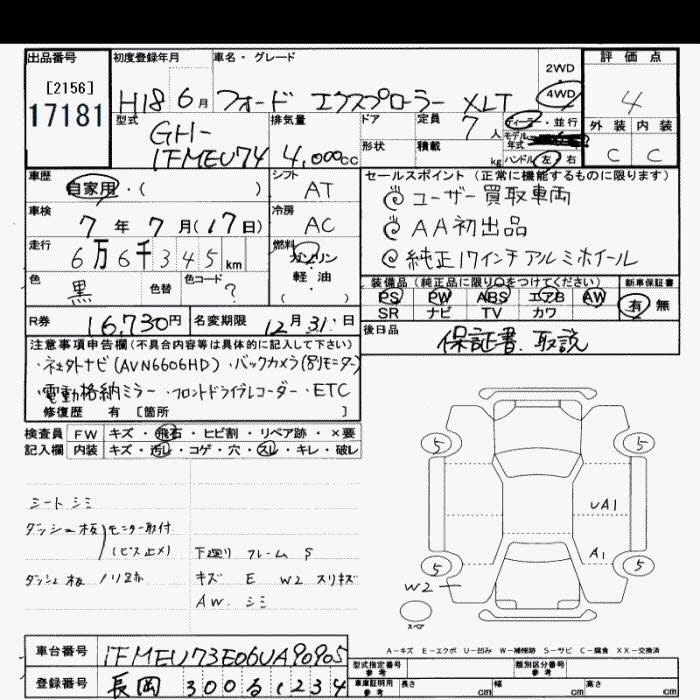 出品番号
[2156]
17181
初度登録年月
H18 6月
車名・グレード
フォード エクスプローラー XLT
2WD
4WD
評価点
4
外装 内装
C C
型式
GH-
1FMEU74
排気量
4,000cc
ドア
定員
7人
形状
積載
kg
ディーラー・並行
モデル
年式
ハンドル 左 右
車歴
自家用・( )
シフト
AT
車検
7年7月(17日)
冷房
AC
走行
6万6千345km
燃料
ガソリン
軽油
( )
色
黒
色替
色コード
?
セールスポイント(正常に機能するものに限ります)
◎ユーザー買取車両
◎AA初出品
◎純正17インチアルミホイール
装備品(純正品に限り○をつけてください)
PS PW ABS エアB AW
SR ナビ TV カワ
新車保証書
有 無
R券
16,730円
名変期限
12月31日
後日品
保証書、取説
注意事項申告欄(不具合内容等は具体的に記入して下さい)
・社外ナビ(AVN6606HD)・バックカメラ(別モニター)
・電動格納ミラー・フロントドライブレコーダー・ETC
修復歴 有 [箇所 ]
検査員 FW キズ・飛石・ヒビ割・リペア跡・×要
記入欄 内装 キズ・汚レ・コゲ・穴・スレ・キレ・破レ
シートシミ
ダッシュ板 モニター取付
(ビス止メ)
ダッシュ板 ノリ跡
下廻り フレーム S
キズ E W2 スリキズ
AW. シミ
5 5
UA1
A1
5 5
W2
スペア
A-キズ E-エクボ U-凹み W-補修跡 S-サビ C-腐食 XX-交換済
車台番号
1FMEU73E06UA90905
登録番号
長岡 300る1234
型式指定番号
参考
類別区分番号
参考
車庫証明用
参考
長さ cm 幅 cm 高さ cm